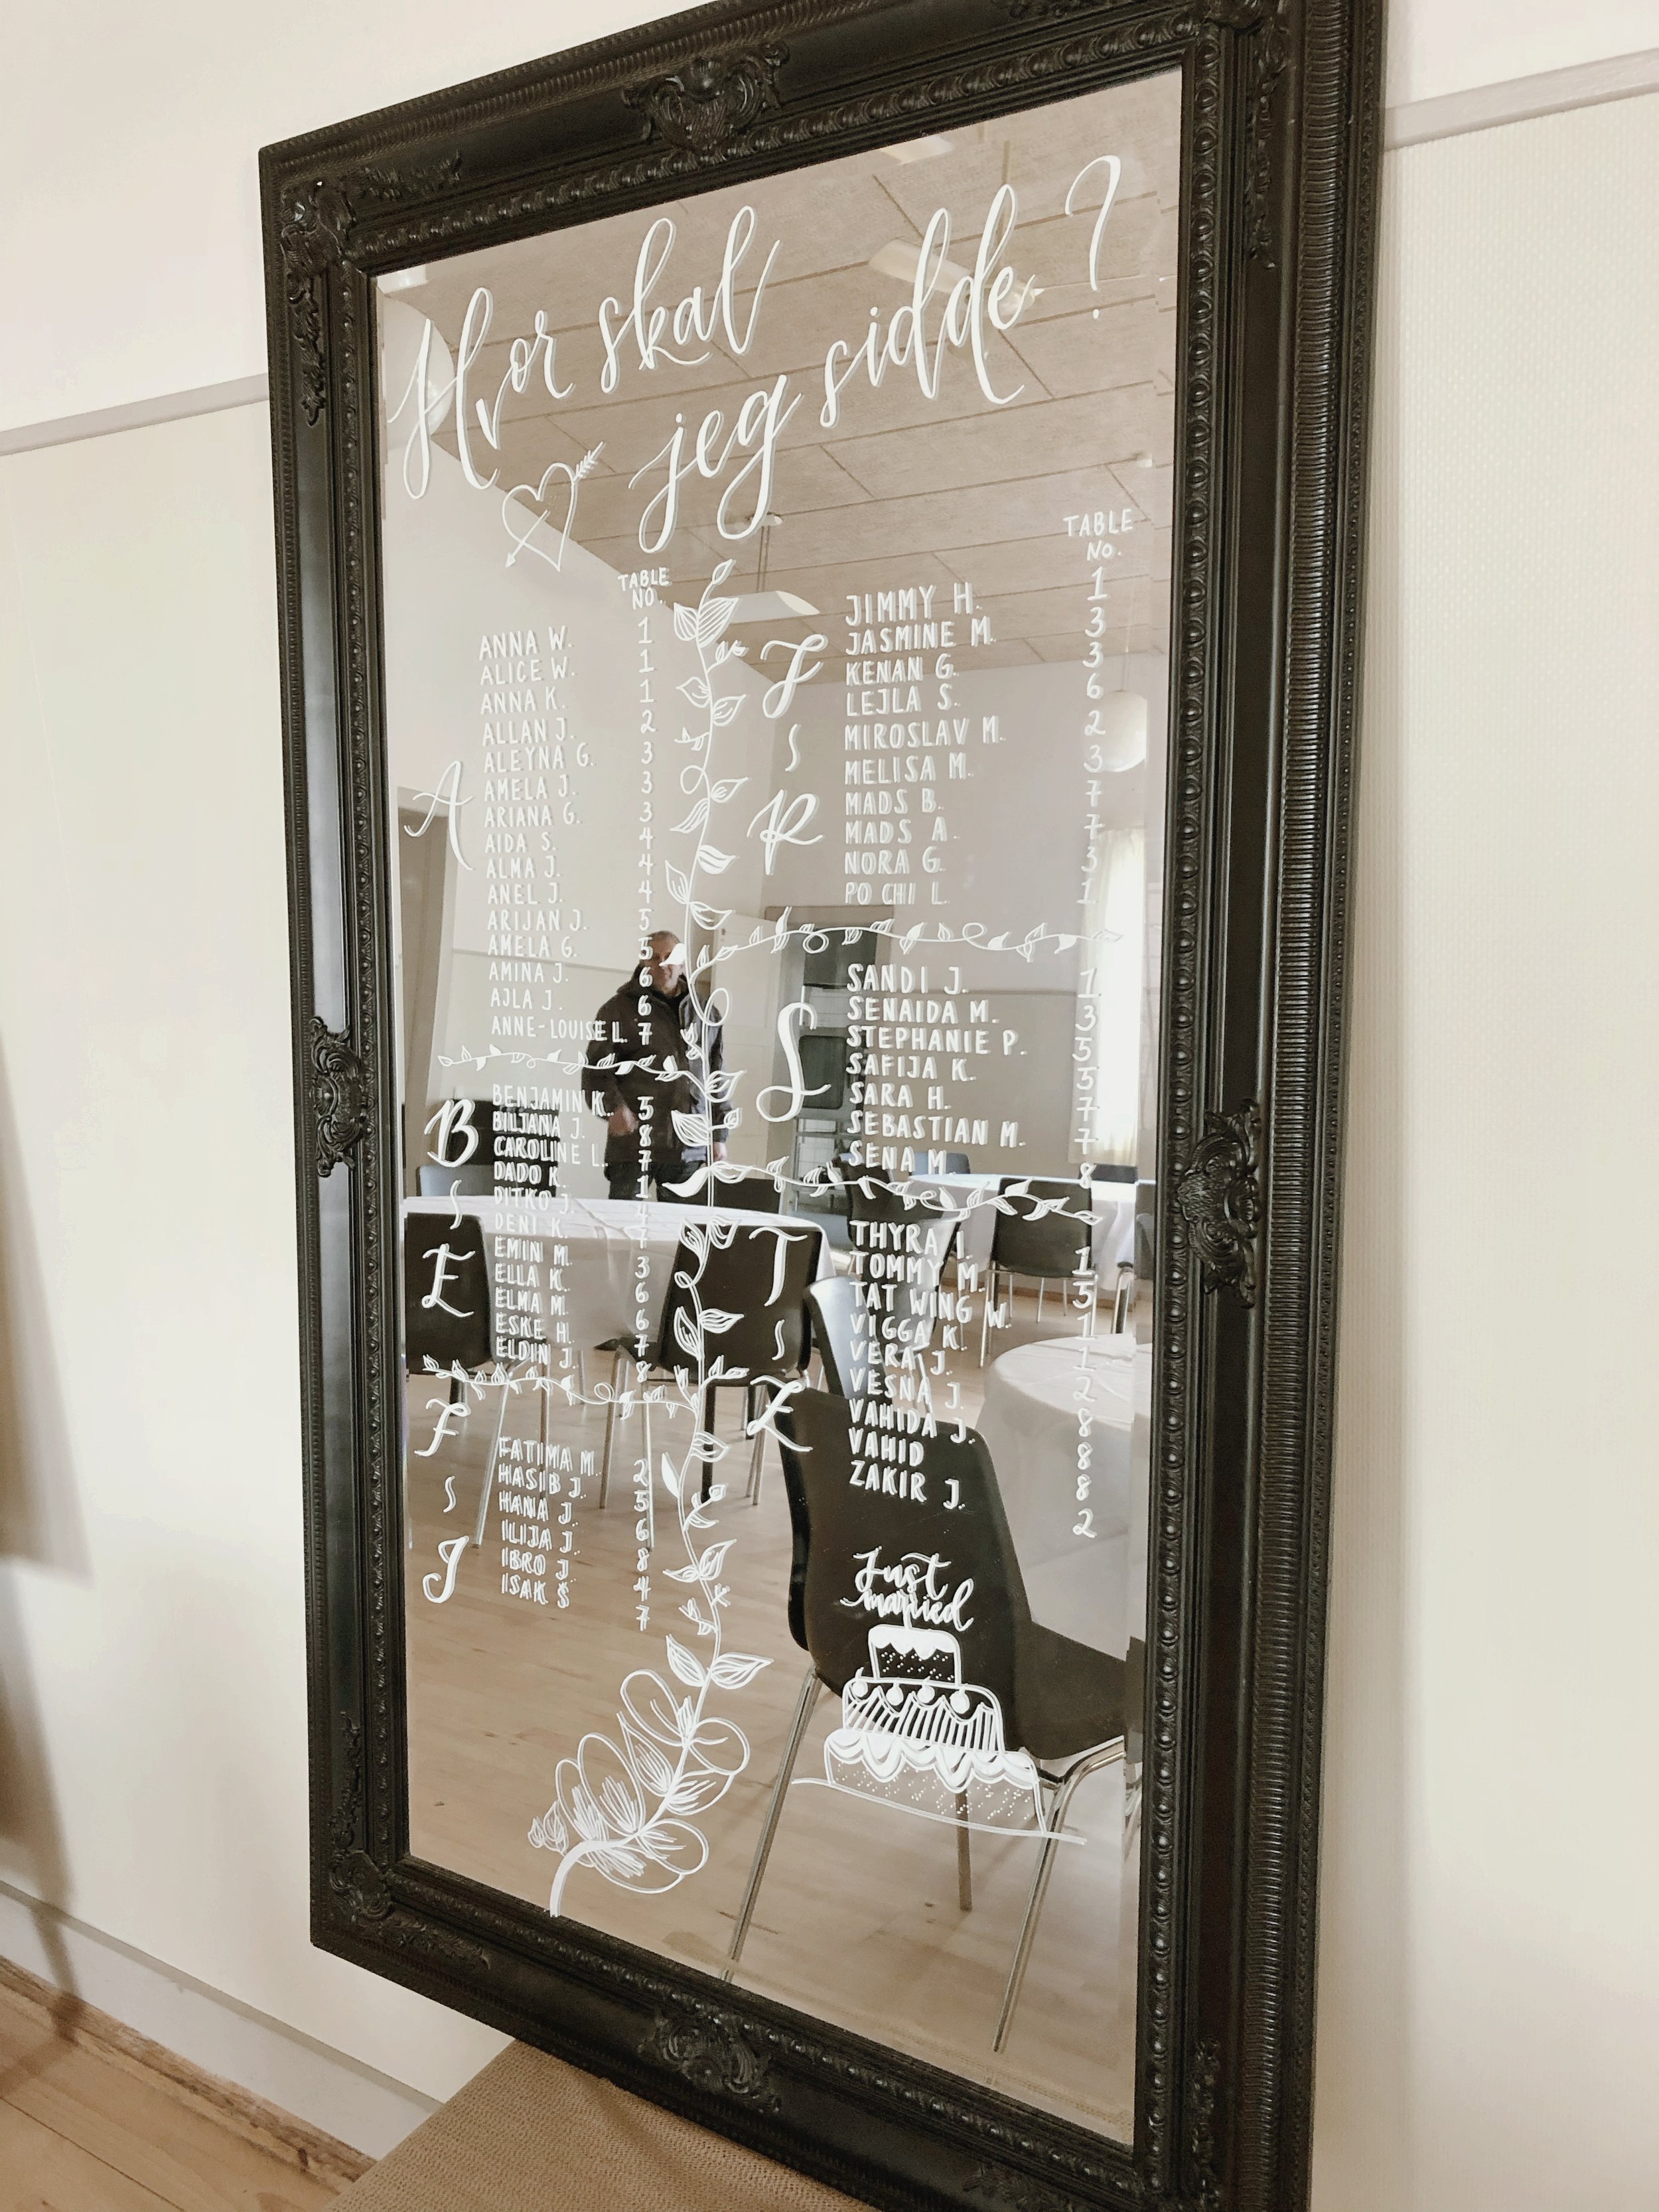 Hvor skal
jeg sidde?
TABLE
NO.
A
ANNA W. 1
ALICE W. 1
ANNA K. 1
ALLAN J. 2
ALEYNA G. 3
AMELA J. 3
ARIANA G. 3
AIDA S. 4
ALMA J. 4
ANEL J. 4
ARIJAN J. 5
AMELA G. 5
AMINA J. 6
AJLA J. 6
ANNE-LOUISE L. 7
B
E
BENJAMIN K. 5
BILJANA J. 8
CAROLINE L. 7
DADO K. 1
DITKO J.
DENI K. 7
EMIN M. 3
ELLA K. 6
ELMA M. 6
ESKE H. 7
ELDIN J. 8
F
I
FATIMA M. 2
HASIB J. 5
HANA J. 6
ILIJA J. 8
IBRO J 4
ISAK S 7
TABLE
No.
J
R
JIMMY H. 1
JASMINE M. 3
KENAN G. 3
LEJLA S. 6
MIROSLAV M. 2
MELISA M. 3
MADS B. 7
MADS A. 7
NORA G. 3
PO CHI L. 1
S
SANDI J. 1
SENAIDA M. 3
STEPHANIE P. 5
SAFIJA K. 5
SARA H. 7
SEBASTIAN M. 7
SENA M 8
T
Z
THYRA I. 1
TOMMY M. 5
TAT WING W. 1
VIGGA K. 1
VERA J. 2
VESNA J. 8
VAHIDA J. 8
VAHID 8
ZAKIR J. 2
Just
married